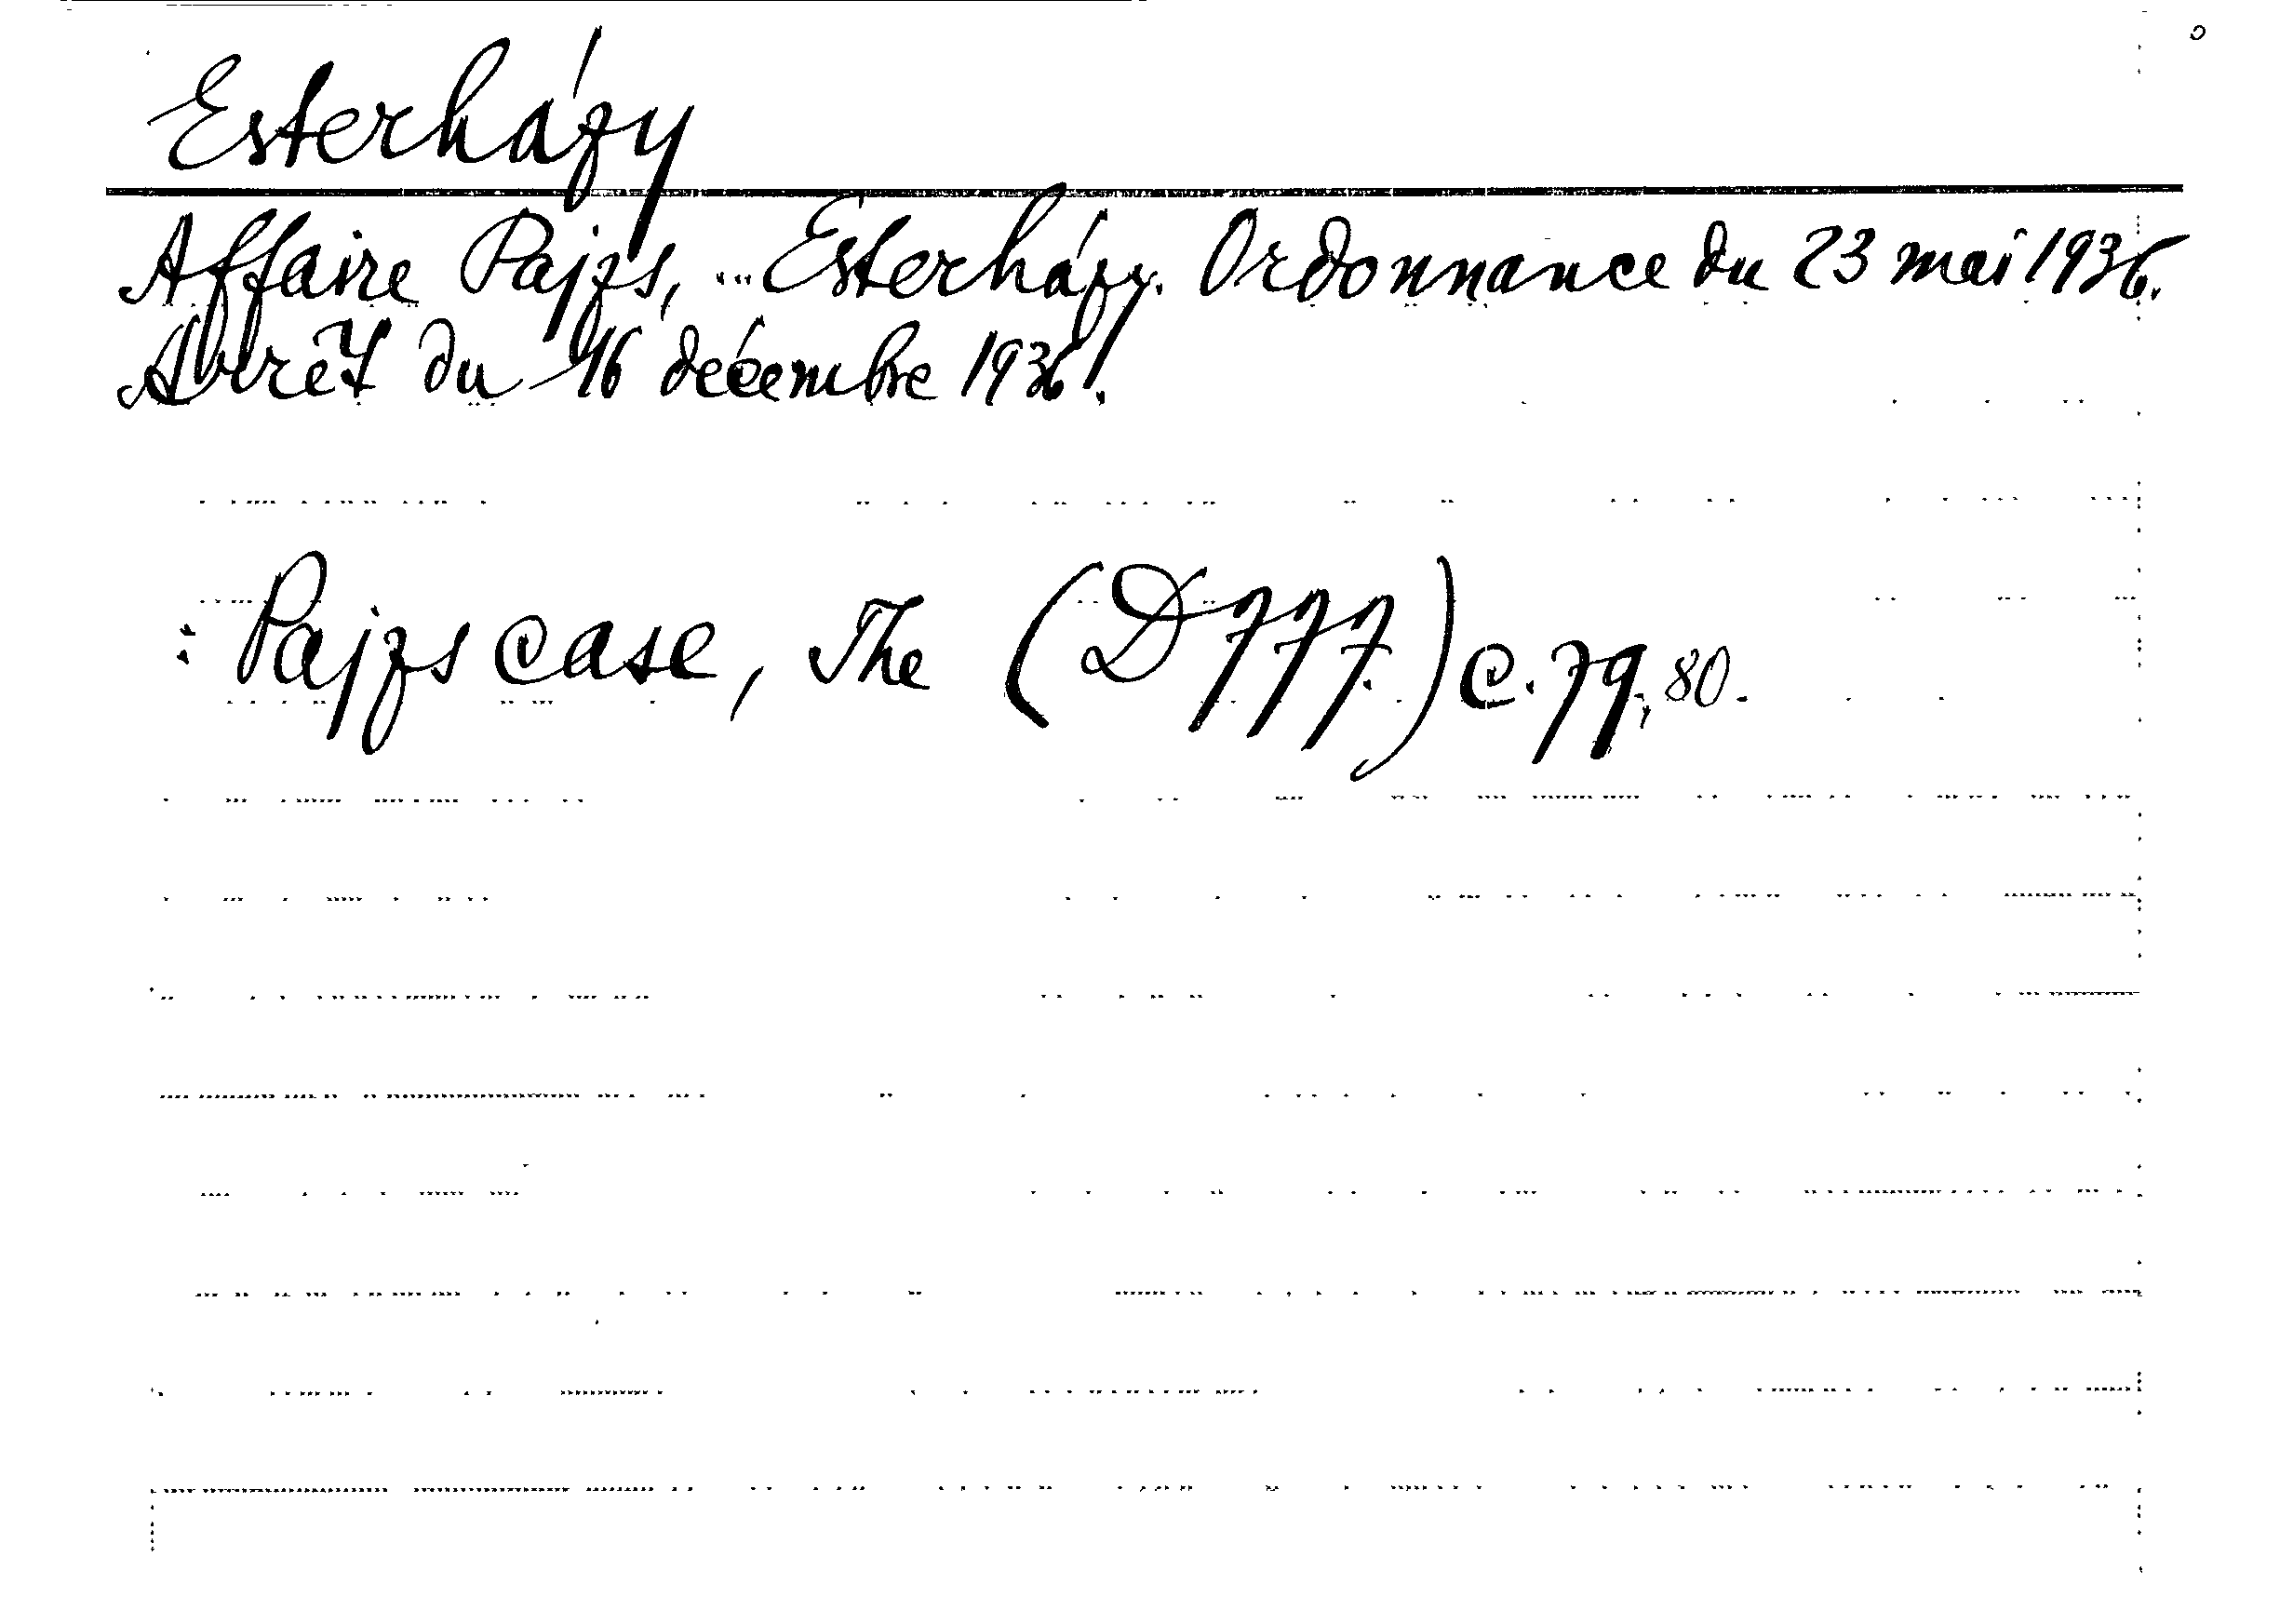 Esterházy
Affaire Pajzs, ... Esterházy. Ordonnance du 23 mai 1936.
Arrêt du 16 décembre 1936.
: Pajzs case, The (D 777.) C. 79, 80.